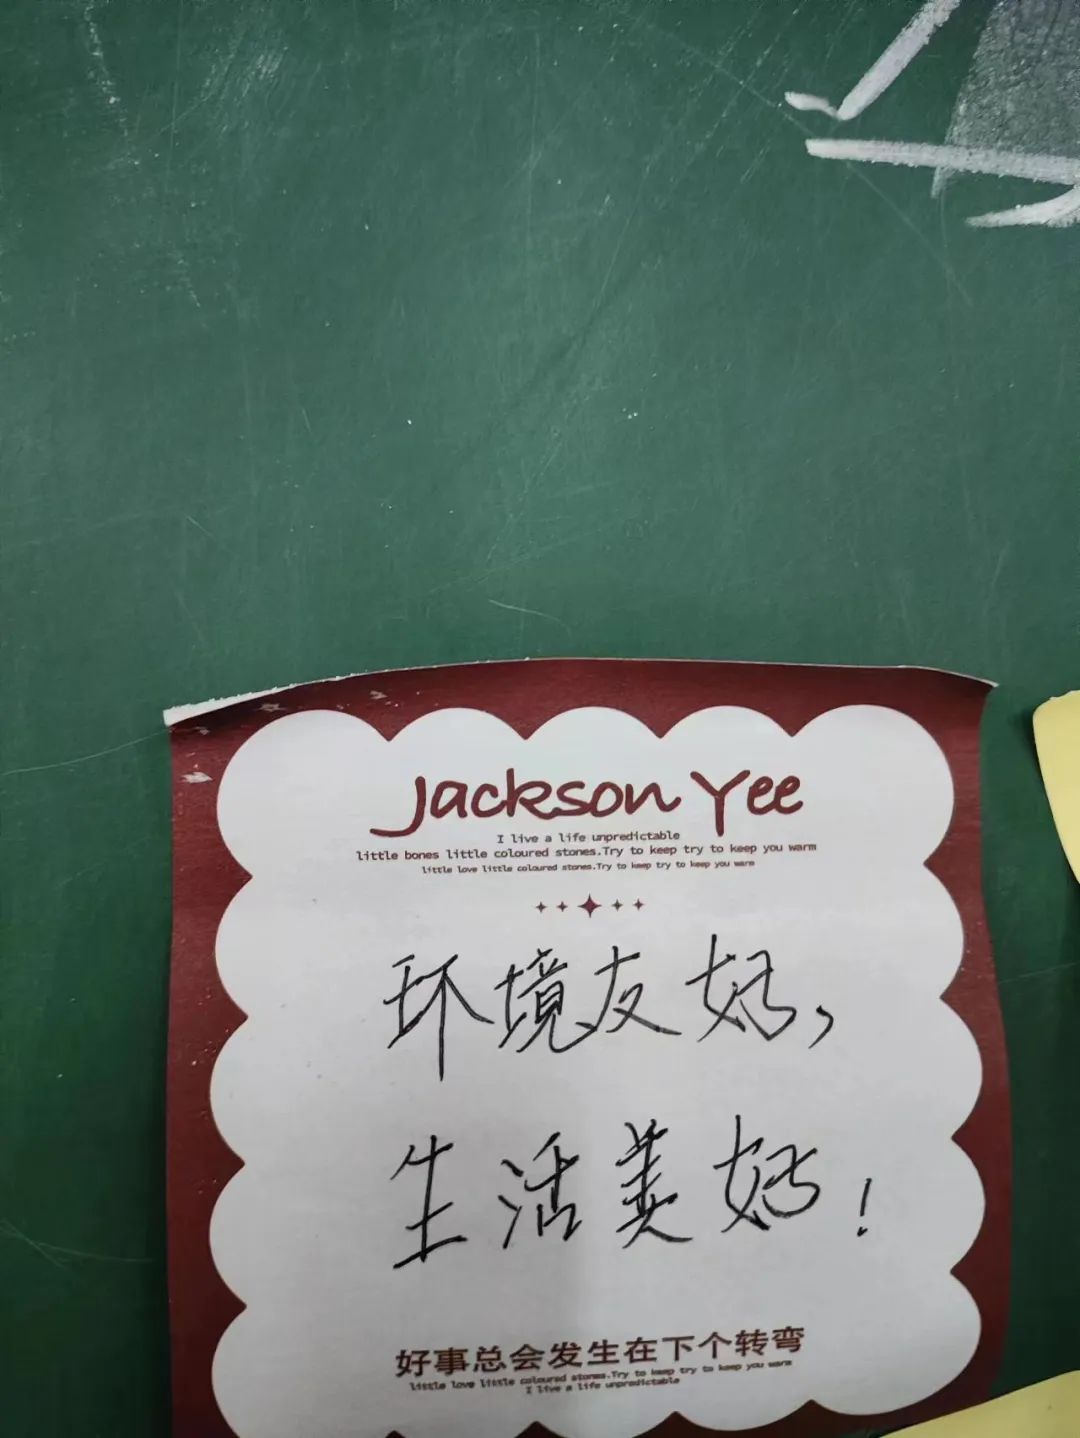 Jackson Yee
I live a life unpredictable
little bones little coloured stones.Try to keep try to keep you warm
little love little coloured stones.Try to keep try to keep you warm
环境友好，
生活美好！
好事总会发生在下个转弯
little love little coloured stones.Try to keep try to keep you warm
I live a life unpredictable